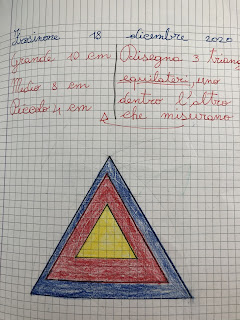 Frosinone 18 dicembre 2020
Disegna 3 triang
equilateri, uno
dentro l'altro
che misurano
grande 10 cm
Medio 8 cm
Piccolo 4 cm